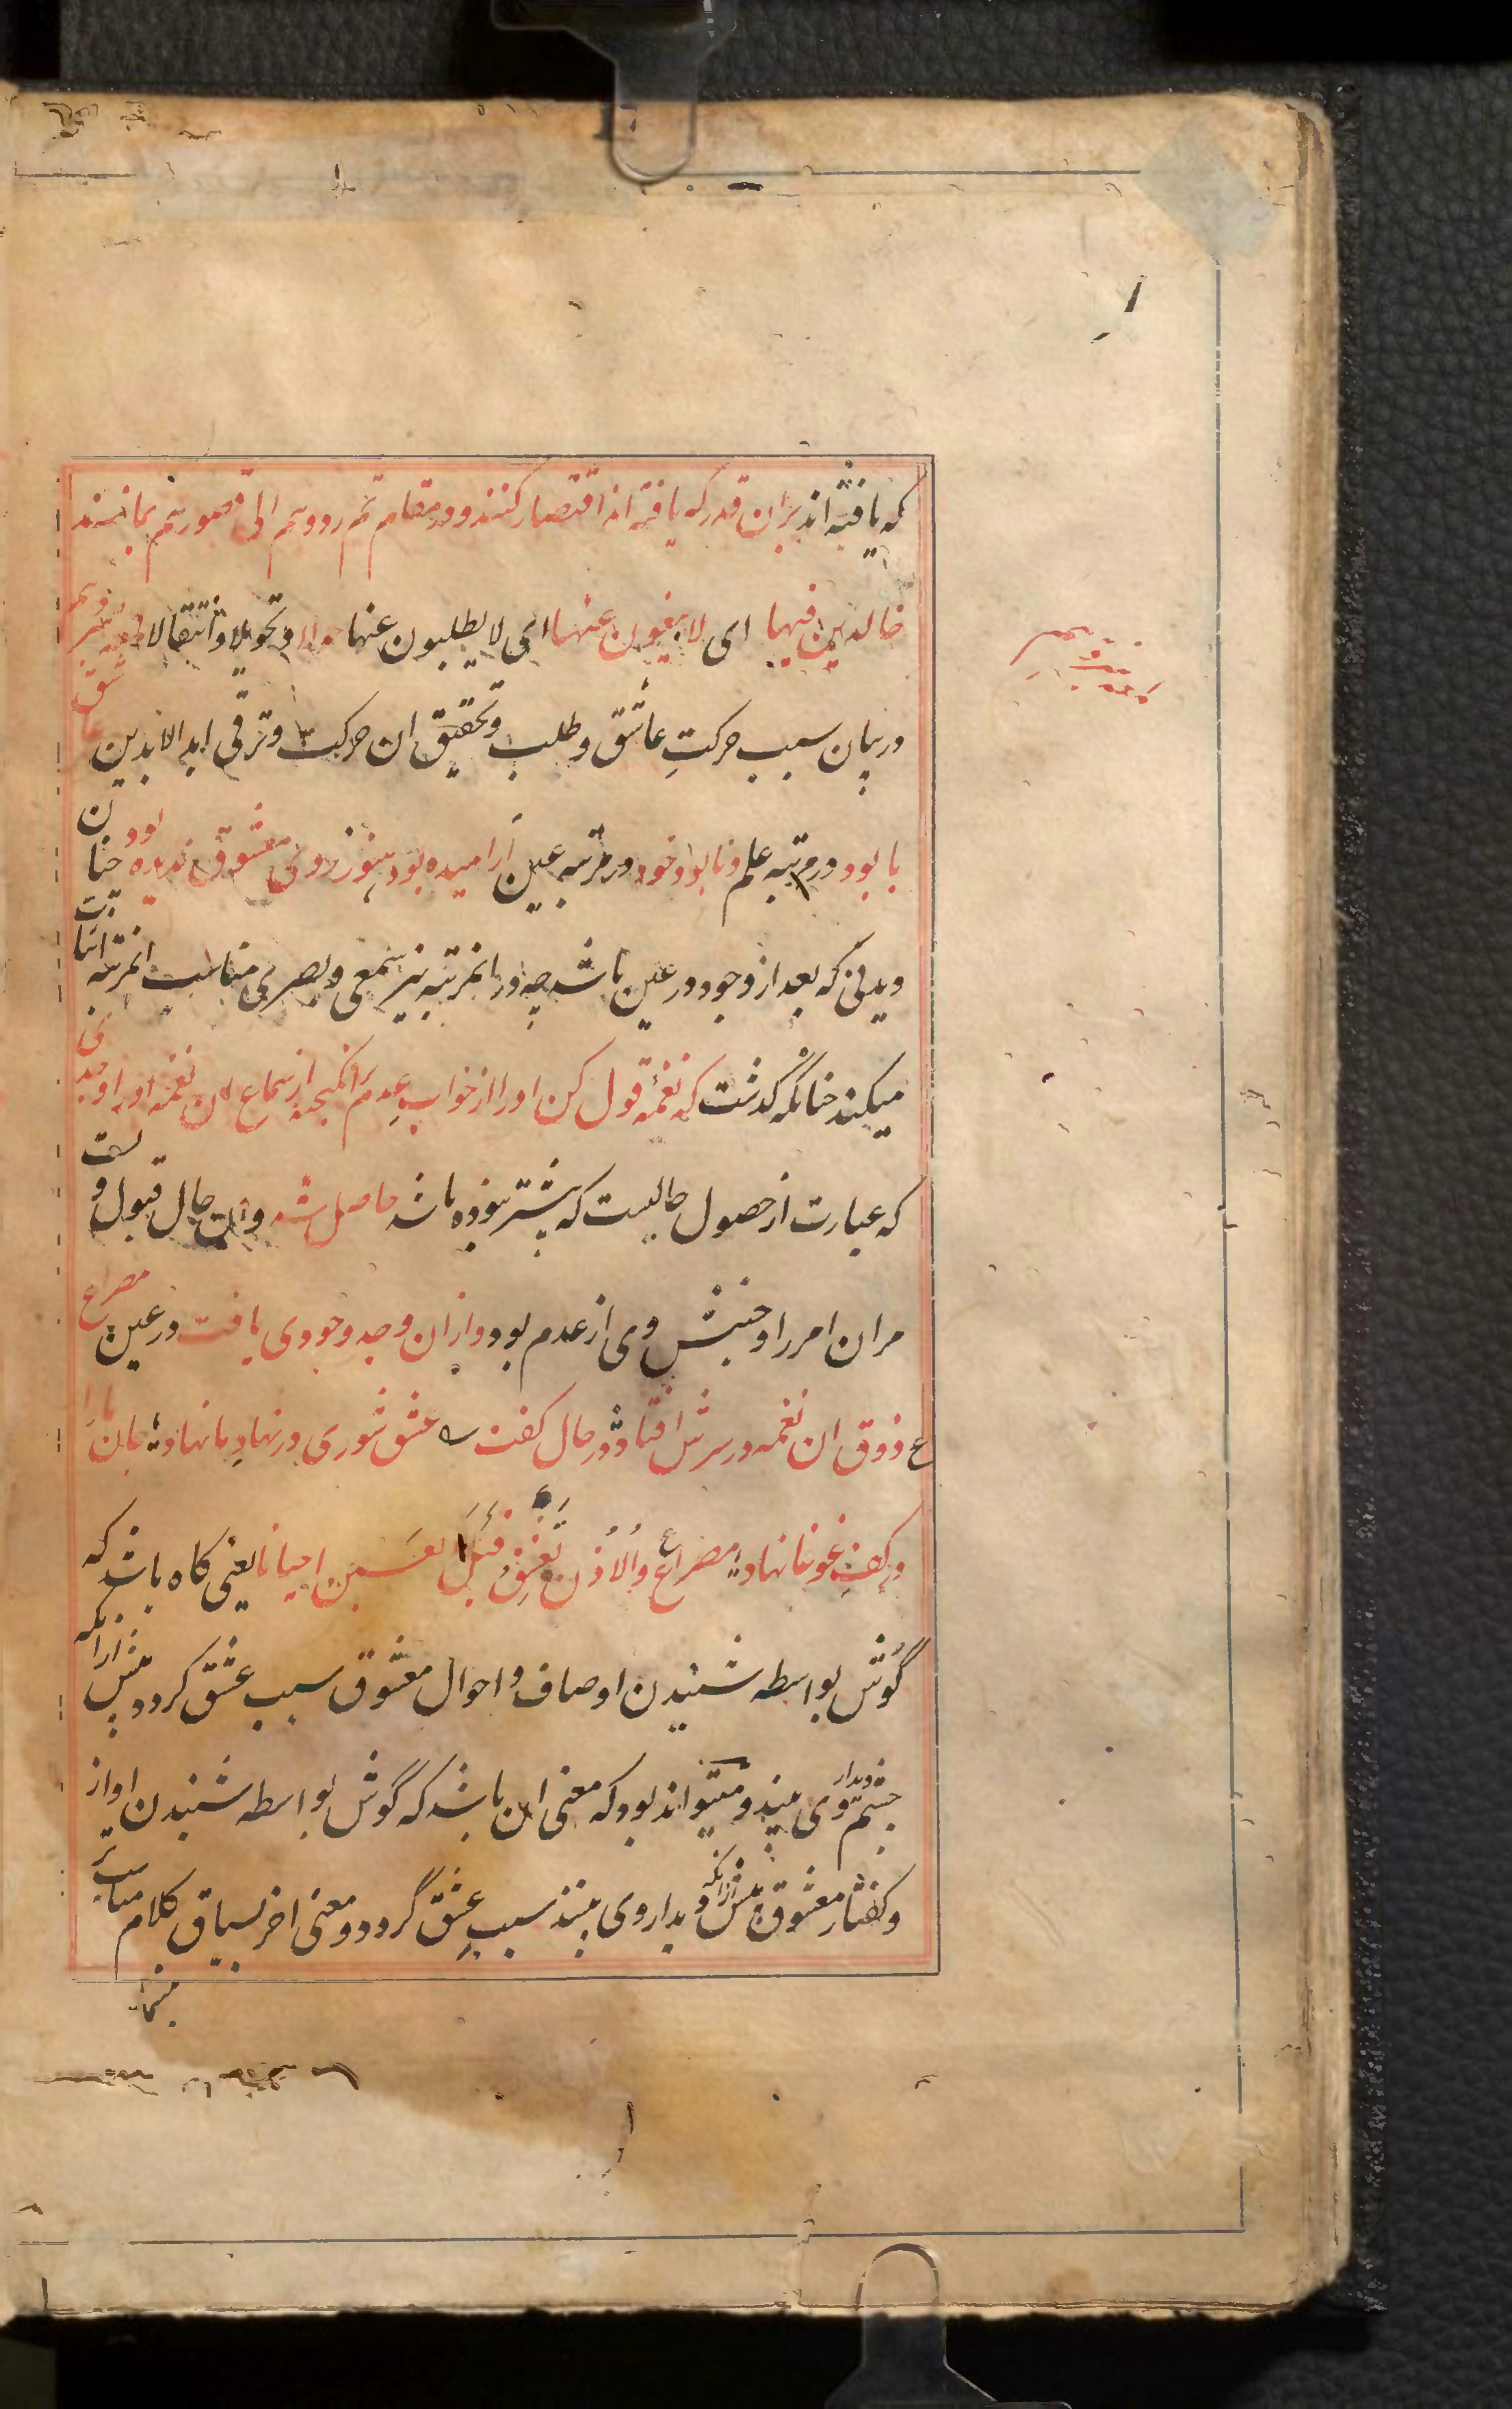 که یافته اند بران قدر که یافته اند اقتصار کنند و در مقام ثم ردوهم الی قصورهم بمانند
خالدین فیها ای لا یبغون عنها ای لا یطلبون عنها حولا و تحویلا و انتقالا لمعه نوزدهم
در بیان سبب حرکت عاشق و طلب و تحقیق ان حرکت و ترقی ابد الابدین عاشق
با بود در مرتبه علم و نابود خود در مرتبه عین آرامیده بود هنوز روی معشوق ندیده بود چنان
دیدنی که بعد از وجود در عین باشد چه در انمرتبه نیز سمعی و بصری مناسب انمرتبه اثبات
میکنند چنانکه گذشت که نغمهٔ قول کن او را از خواب عدم برانگیخت از سماع ان نغمه او را وجدی
که عبارت از حصول حالیست که پیشتر نبوده باشد حاصل شد و ان حال قبول وست
مر ان امر را و جنبش وی از عدم بود و از ان وجد وجودی یافت در عین مصرع
ع ذوق ان نغمه در سرش افتاد در حال گفت عشق شوری در نهاد ما نهاد جان ما را
در کف غوغا نهاد مصراع والاذن تعشق قبل العین احیانا یعنی کاه باشد که
گوش بواسطه شنیدن اوصاف و احوال معشوق سبب عشق کردد پیش ازانکه
چشم دیدار وی بیند و میتواند بود که معنی ان باشد که گوش بواسطه شنیدن اواز
و کفتار معشوق پیش ازانکه دیدار وی بیند سبب عشق گردد و معنی اخر بسیاق کلام مناسبتر
مینماید